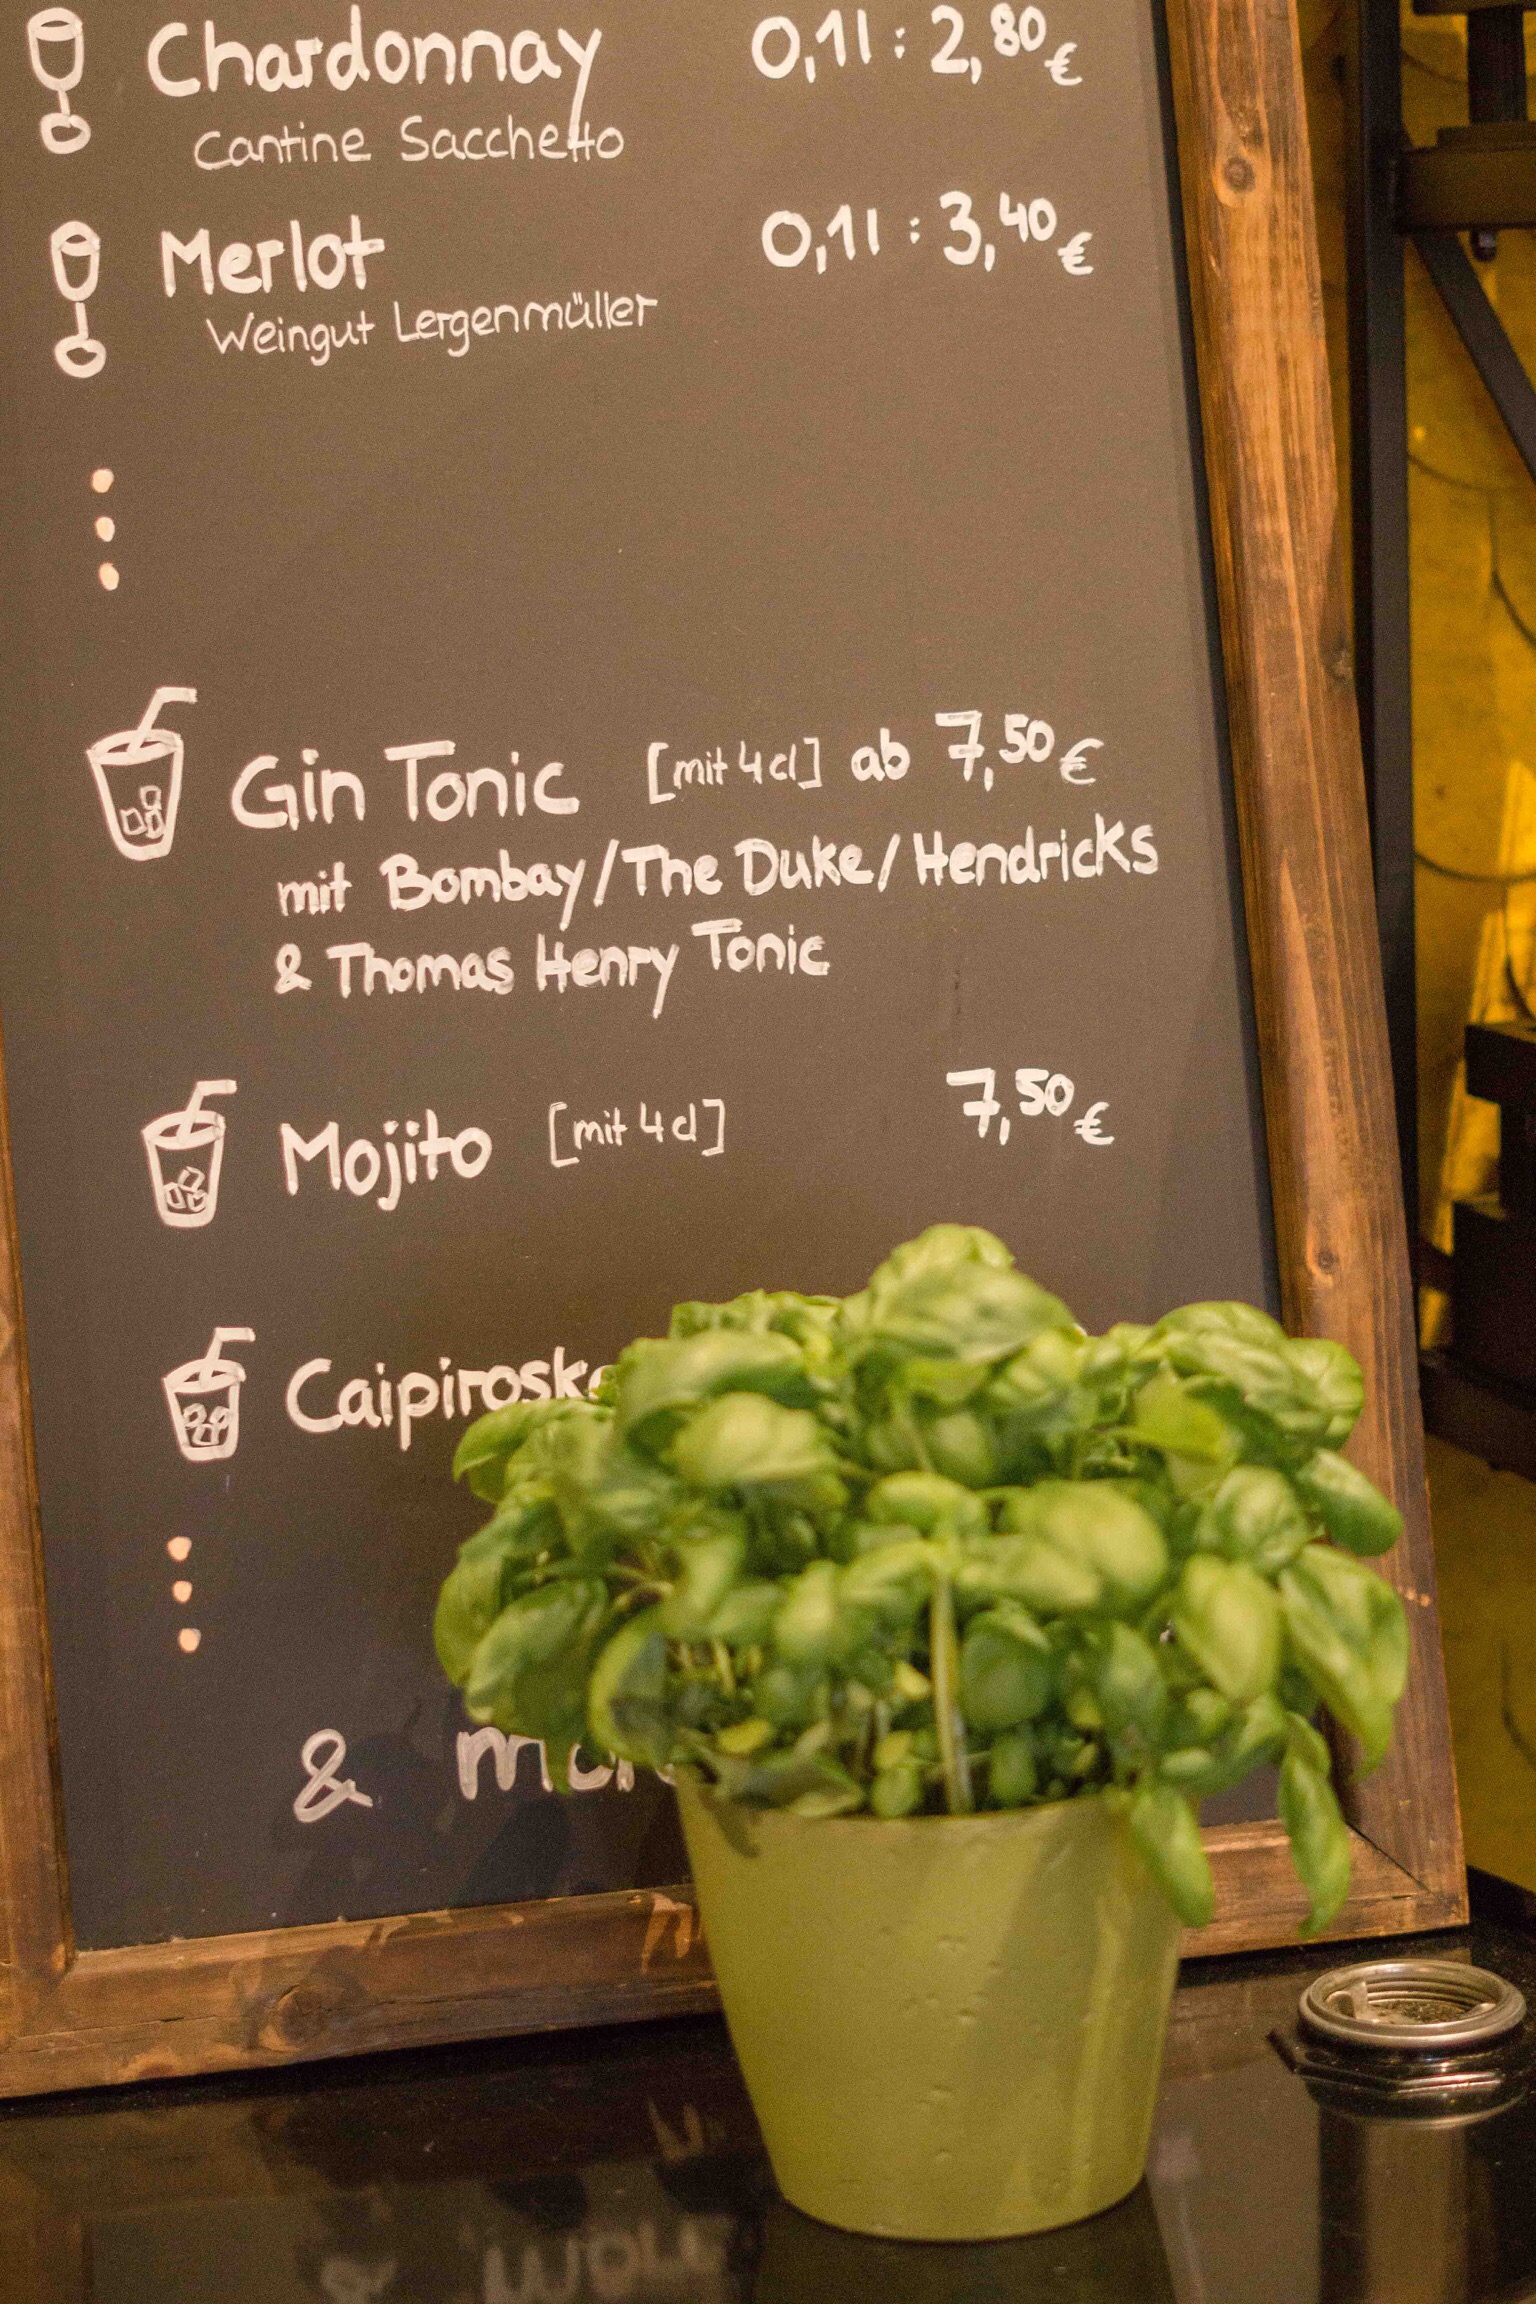 Chardonnay 0,1l : 2,80 €
Cantine Sacchetto
Merlot 0,1l : 3,40 €
Weingut Lergenmüller
Gin Tonic [mit 4 cl] ab 7,50 €
mit Bombay / The Duke / Hendricks
& Thomas Henry Tonic
Mojito [mit 4 cl] 7,50 €
Caipiroska
&